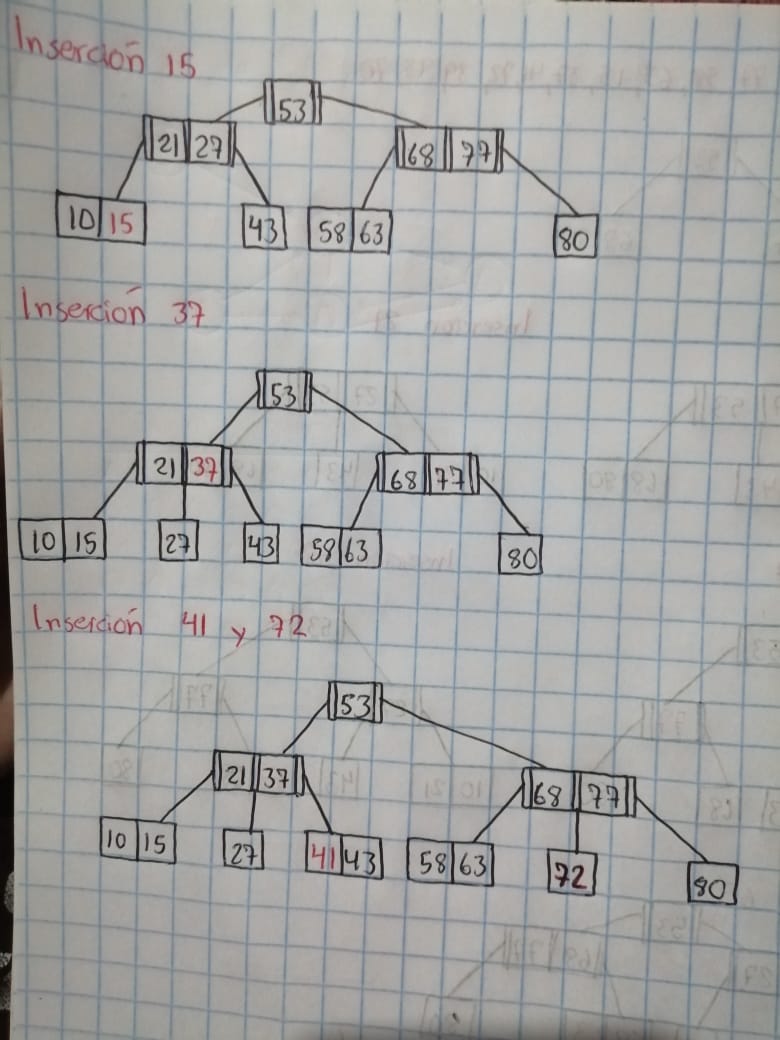 Inserción 15
53
21 27 68 77
10 15 43 58 63 80
Inserción 37
53
21 37 68 77
10 15 27 43 58 63 80
Inserción 41 y 72
53
21 37 68 77
10 15 27 41 43 58 63 72 80